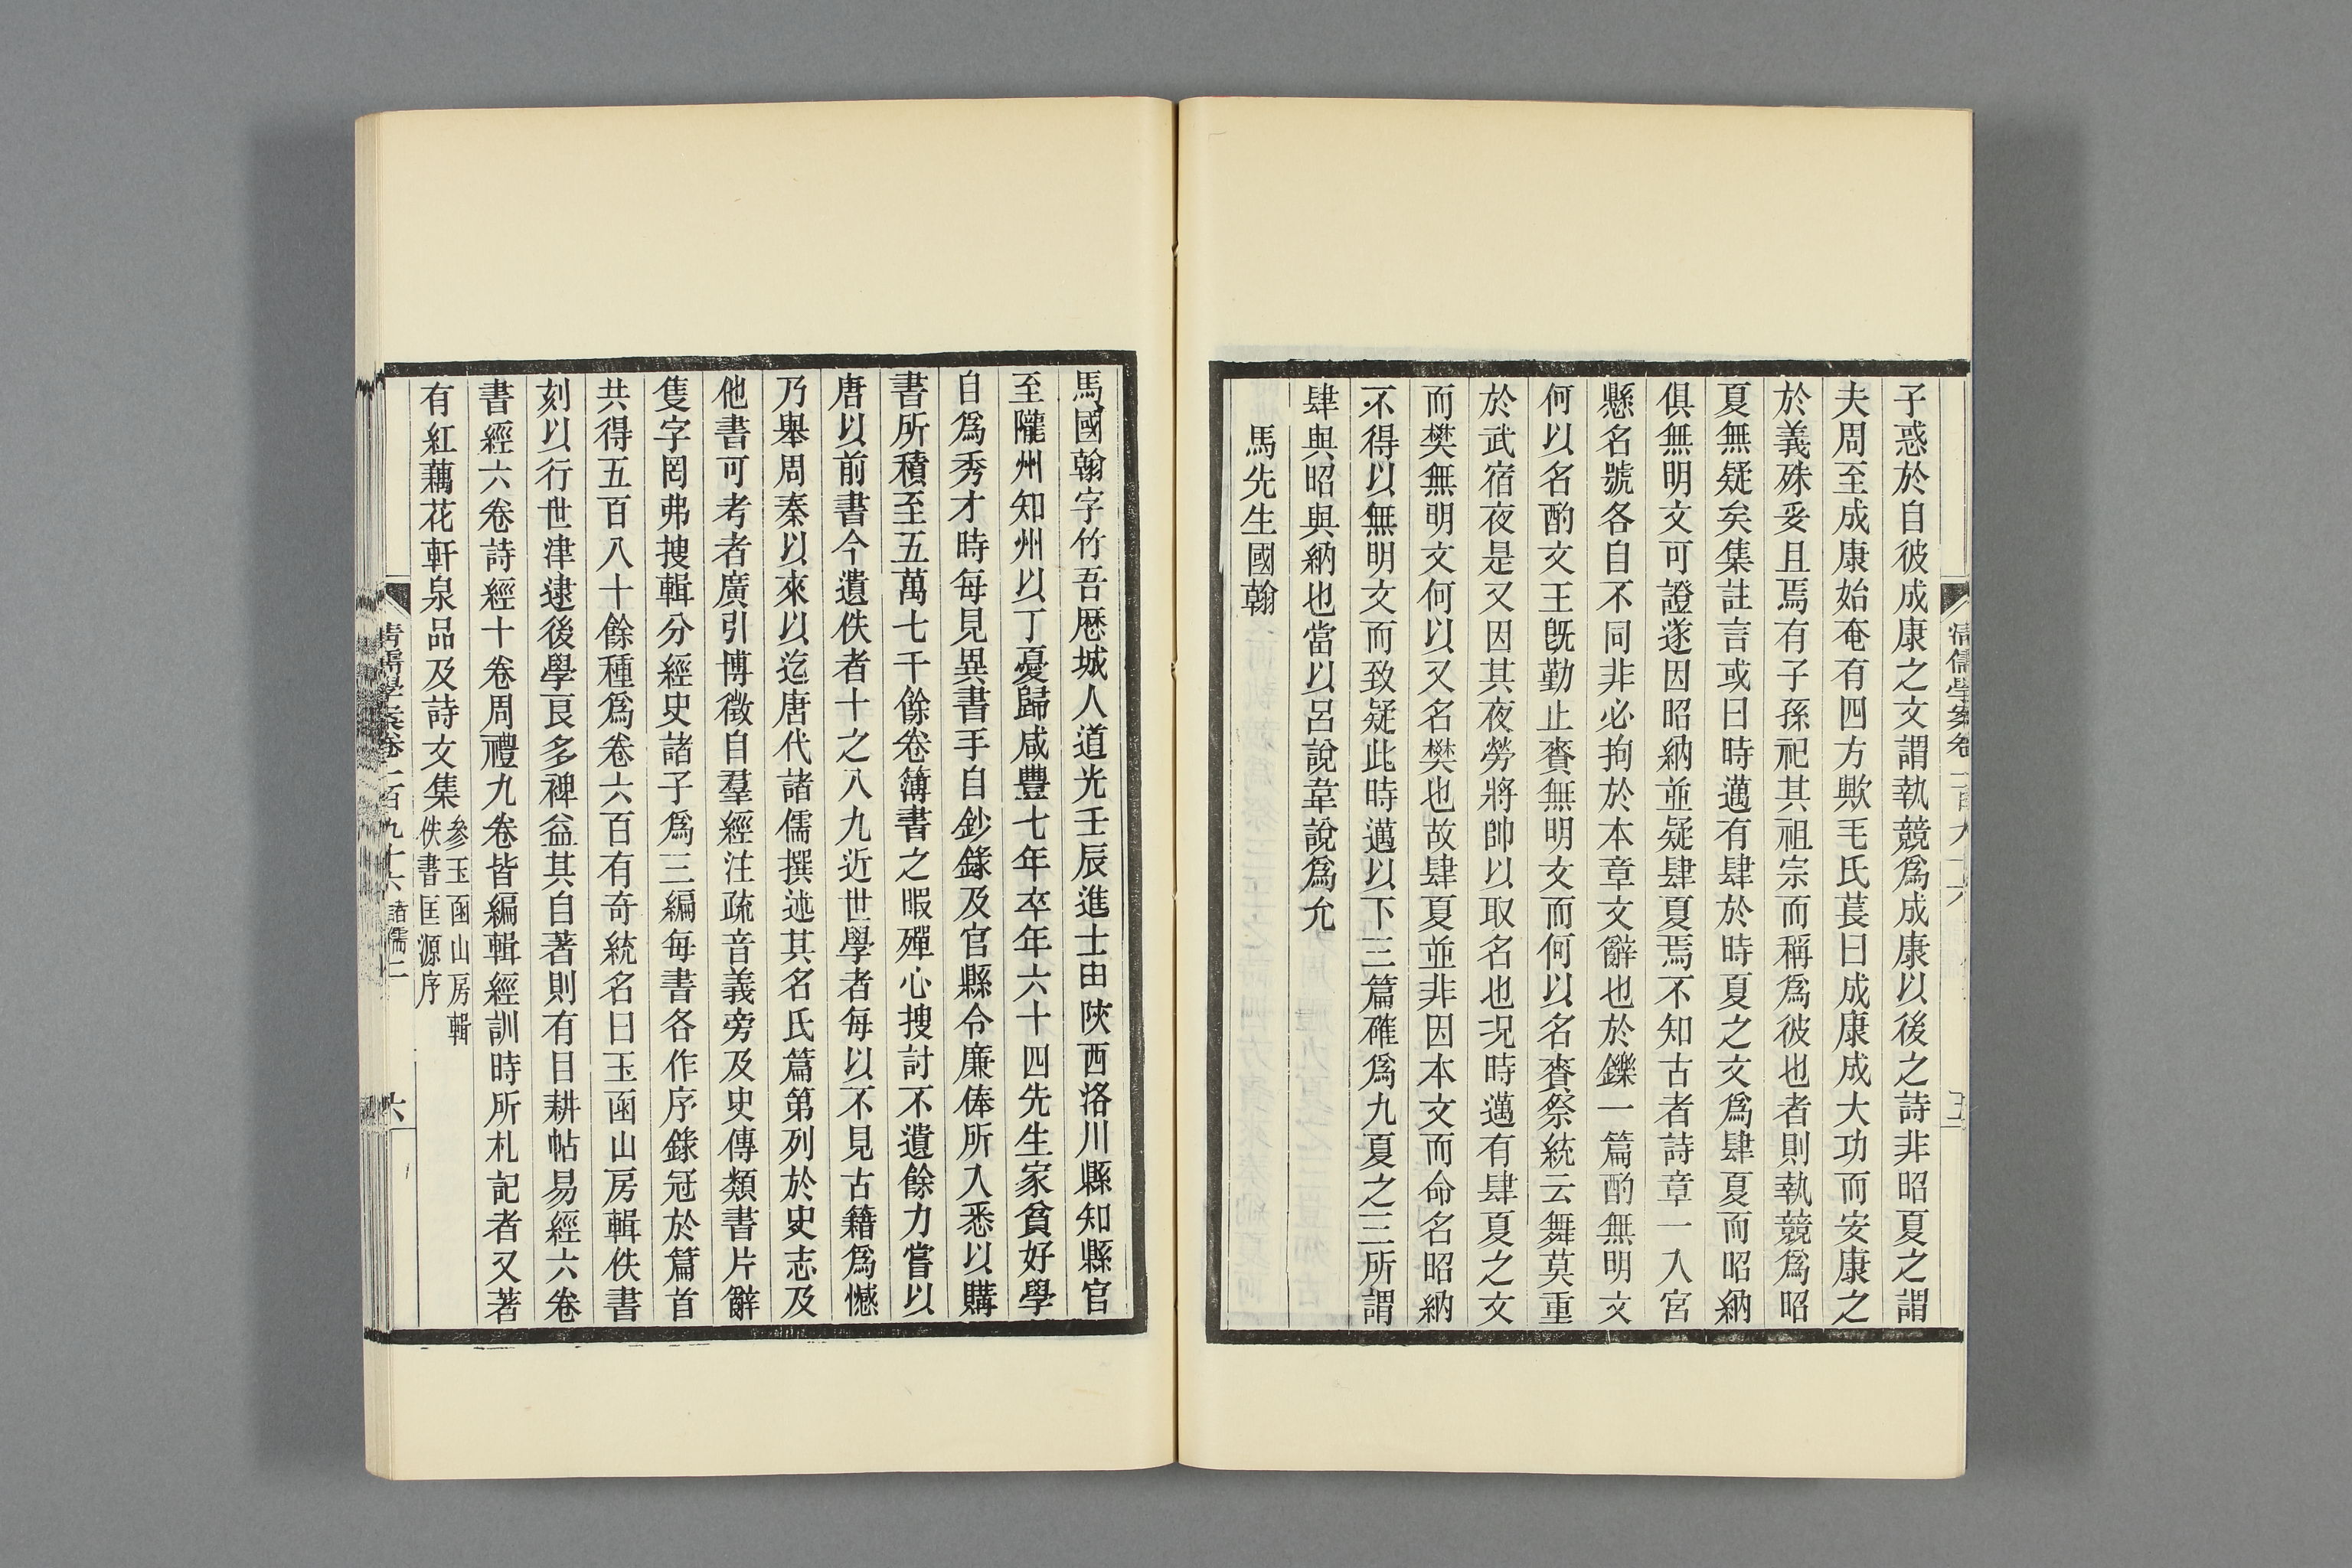 子惑於自彼成康之文謂執競爲成康以後之詩非昭夏之謂
夫周至成康始奄有四方歟毛氏萇曰成康成大功而安康之
於義殊妥且焉有子孫祀其祖宗而稱爲彼也者則執競爲昭
夏無疑矣集註言或曰時邁有肆於時夏之文爲肆夏而昭納
俱無明文可證遂因昭納並疑肆夏焉不知古者詩章一入宮
懸名號各自不同非必拘於本章文辭也於鑠一篇酌無明文
何以名酌文王旣勤止賚無明文而何以名賚祭統云舞莫重
於武宿夜是又因其夜勞將帥以取名也況時邁有肆夏之文
而樊無明文何以又名樊也故肆夏並非因本文而命名昭納
不得以無明文而致疑此時邁以下三篇確爲九夏之三所謂
肆與昭與納也當以呂說韋說爲允
馬先生國翰
馬國翰字竹吾歷城人道光壬辰進士由陝西洛川縣知縣官
至隴州知州以丁憂歸咸豐七年卒年六十四先生家貧好學
自爲秀才時每見異書手自鈔錄及官縣令廉俸所入悉以購
書所積至五萬七千餘卷簿書之暇殫心搜討不遺餘力嘗以
唐以前書今遺佚者十之八九近世學者每以不見古籍爲憾
乃舉周秦以來以迄唐代諸儒撰述其名氏篇第列於史志及
他書可考者廣引博徵自羣經注疏音義旁及史傳類書片辭
隻字罔弗搜輯分經史諸子爲三編每書各作序錄冠於篇首
共得五百八十餘種爲卷六百有奇統名曰玉函山房輯佚書
刻以行世津逮後學良多裨益其自著則有目耕帖易經六卷
書經六卷詩經十卷周禮九卷皆編輯經訓時所札記者又著
有紅藕花軒泉品及詩文集參玉函山房輯
佚書匡源序
清儒學案卷一百九十六 諸儒二
六